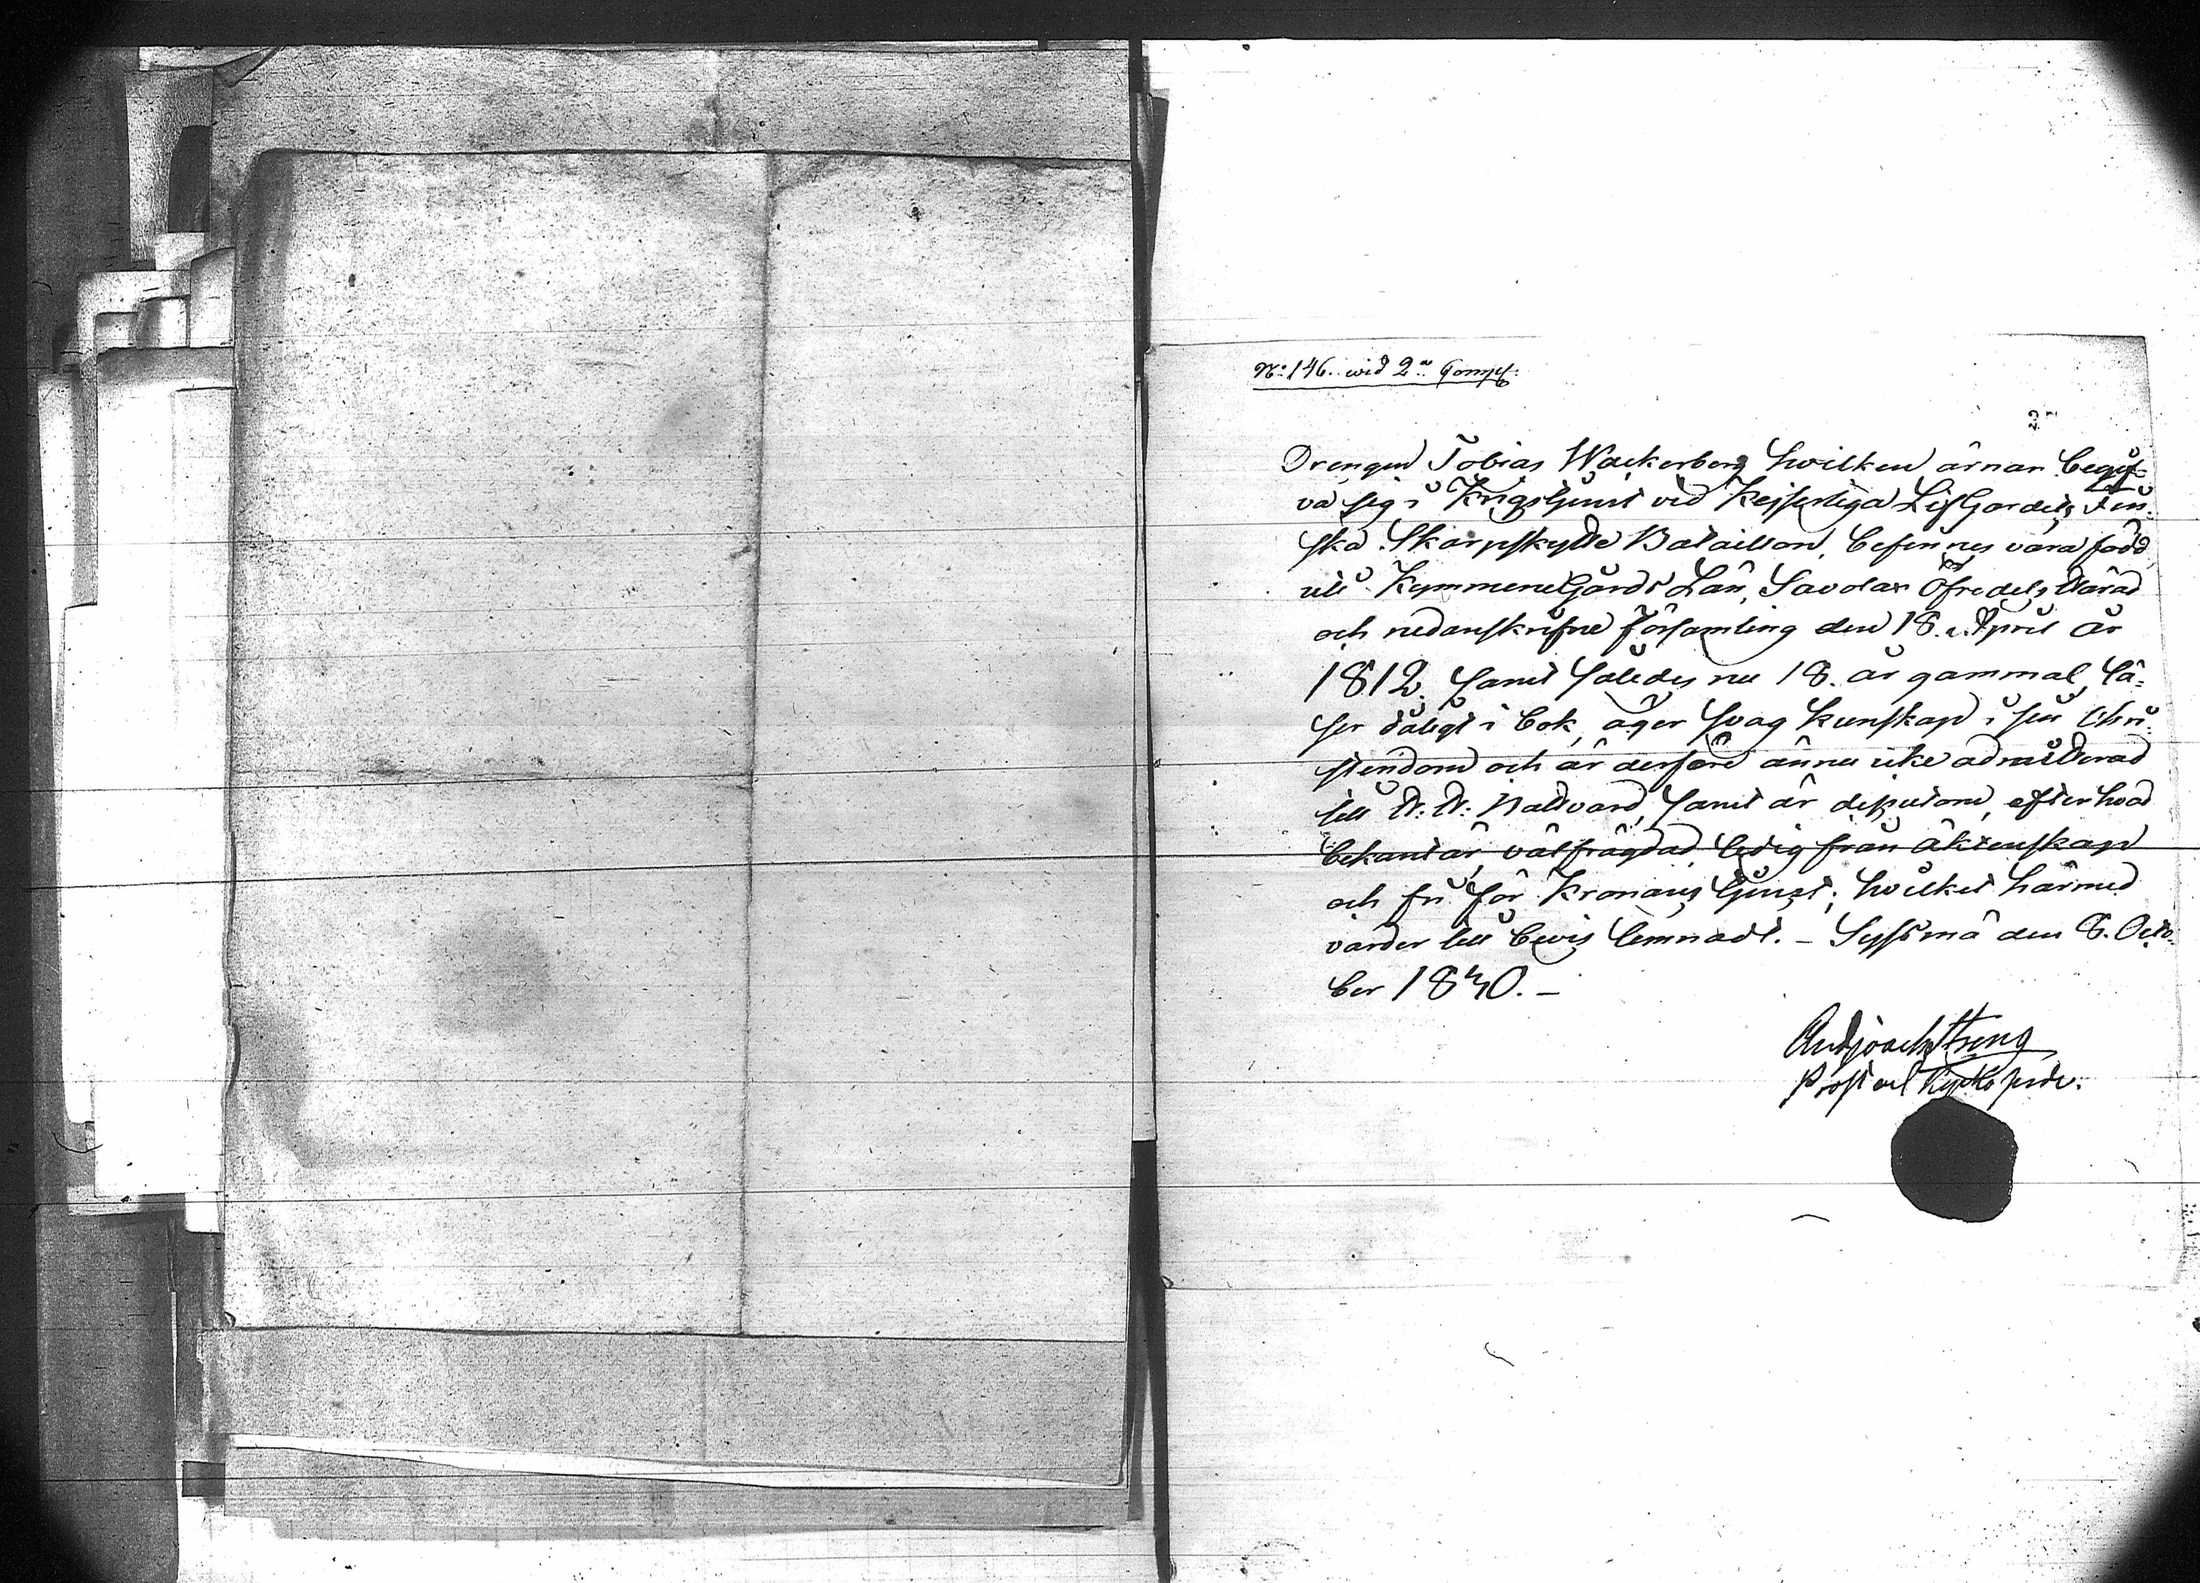 No: 146. wid 2:a Comp:
Drengen Tobias Wackerberg hvilken ärnar begif-
va sig i Krigstjenst vid Kejserliga LifGardets Fin-
ska Skarpskytte Bataillon, befinnes vara född
uti KymmeneGårds Län, Savolax Öfredels Härad
och nedanskrifne Församling den 18. April år
1812. samt således nu 18. år gammal, lä-
ser dåligt i bok, äger svag kunskap i sin Chri-
stendom och är derföre ännu icke admitterad
till H. H. Nattvard, samt är dessutom, efter hvad
bekant är, välfrägdad, ledig från äktenskap
och fri för Kronans tjenst; hvilket härmed
varder till bevis lemnadt. – Syssmä den 8. Octo-
ber 1830. –
Prost och Kyrkoherde.